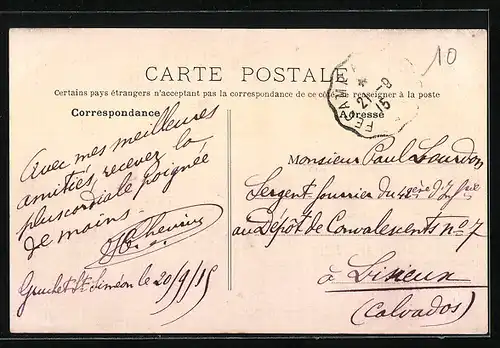 10
CARTE POSTALE
Certains pays étrangers n'acceptent pas la correspondance de ce côté, se renseigner à la poste
Correspondance
Adresse
FÉCAMP
21-9
15
Avec mes meilleures
amitiés, recevez la
plus cordiale poignée
de mains.
Gruchet St Siméon le 20/9/15
Monsieur Paul Lourdon
Sergent fourrier du
au Dépôt de Convalescents no 7
à Lisieux
(Calvados)